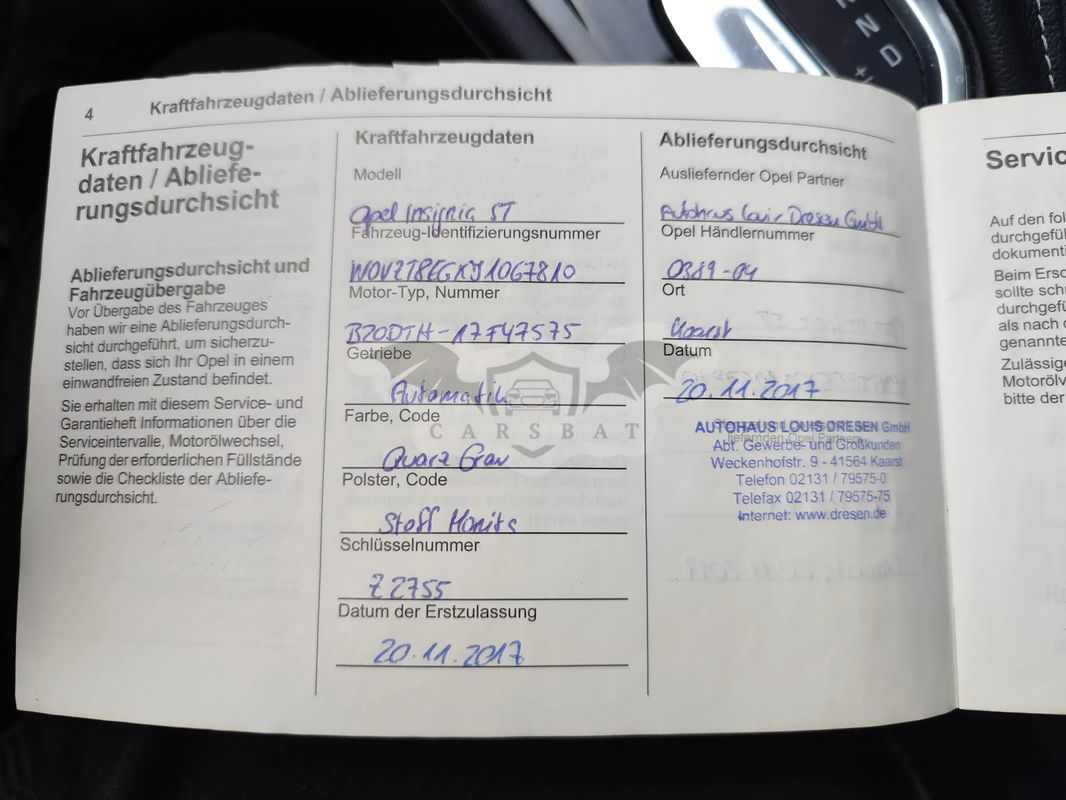 4
Kraftfahrzeugdaten / Ablieferungsdurchsicht
Kraftfahrzeug-
daten / Abliefe-
rungsdurchsicht
Ablieferungsdurchsicht und
Fahrzeugübergabe
Vor Übergabe des Fahrzeuges
haben wir eine Ablieferungsdurch-
sicht durchgeführt, um sicherzu-
stellen, dass sich Ihr Opel in einem
einwandfreien Zustand befindet.
Sie erhalten mit diesem Service- und
Garantieheft Informationen über die
Serviceintervalle, Motorölwechsel,
Prüfung der erforderlichen Füllstände
sowie die Checkliste der Abliefe-
rungsdurchsicht.
Kraftfahrzeugdaten
Modell
Opel Insignia ST
Fahrzeug-Identifizierungsnummer
W0VZT8EGXJ1067810
Motor-Typ, Nummer
B20DTH-17F47575
Getriebe
Automatik
Farbe, Code
Quarz Grau
Polster, Code
Stoff
Schlüsselnummer
Z2755
Datum der Erstzulassung
20.11.2017
Ablieferungsdurchsicht
Ausliefernder Opel Partner
Autohaus Louis Dresen GmbH
Opel Händlernummer
0389-04
Ort
Kaarst
Datum
20.11.2017
AUTOHAUS LOUIS DRESEN GmbH
liefernden Opel Partners
Abt. Gewerbe- und Großkunden
Weckenhofstr. 9 - 41564 Kaarst
Telefon 02131 / 79575-0
Telefax 02131 / 79575-75
Internet: www.dresen.de
CARSBAT
Servic
Auf den fol
durchgefüh
dokumenti
Beim Ersc
sollte sch
durchgefü
als nach d
genannte
Zulässige
Motorölv
bitte der
R
N
D